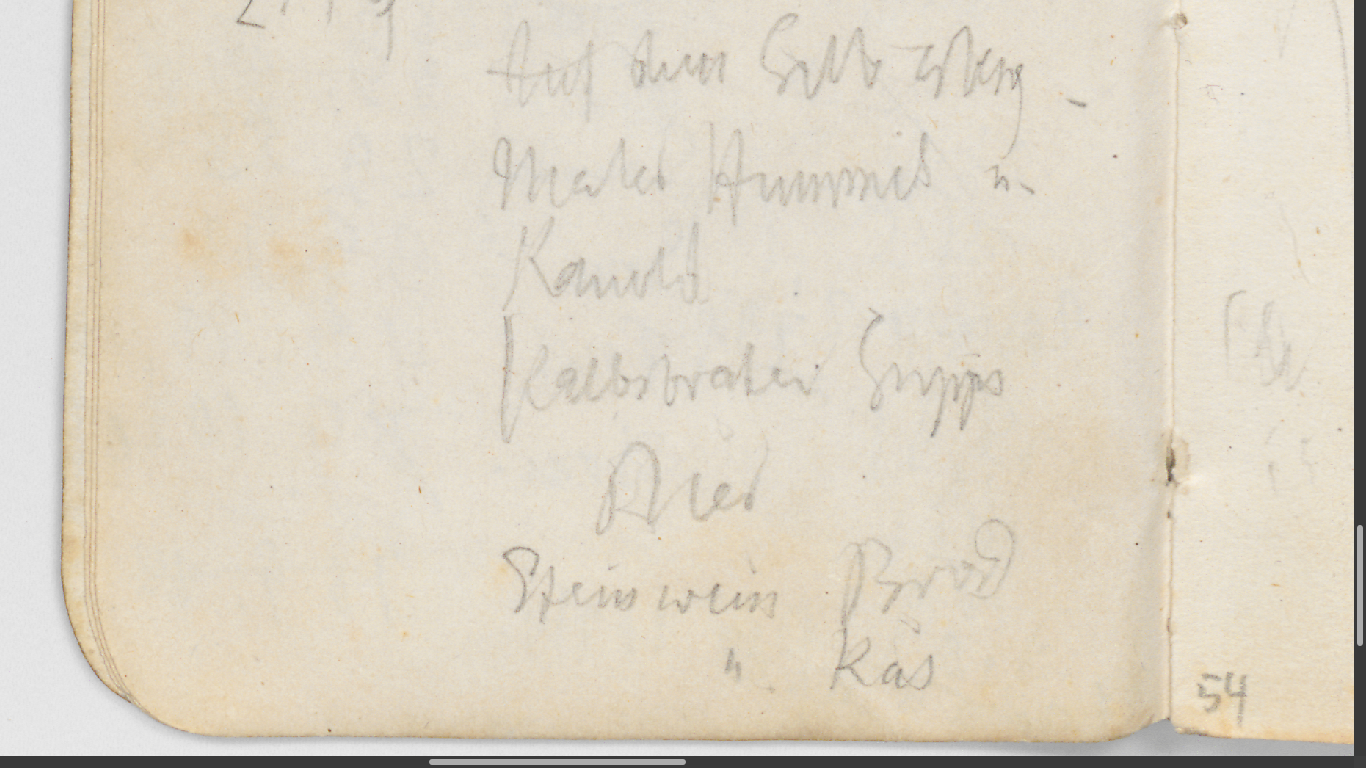 Auf dem Gelbersberg -
Maler Hummel u.
Kanold
Kalbsbraten Supps
Bier
Steinwein Brod
" Käs
54